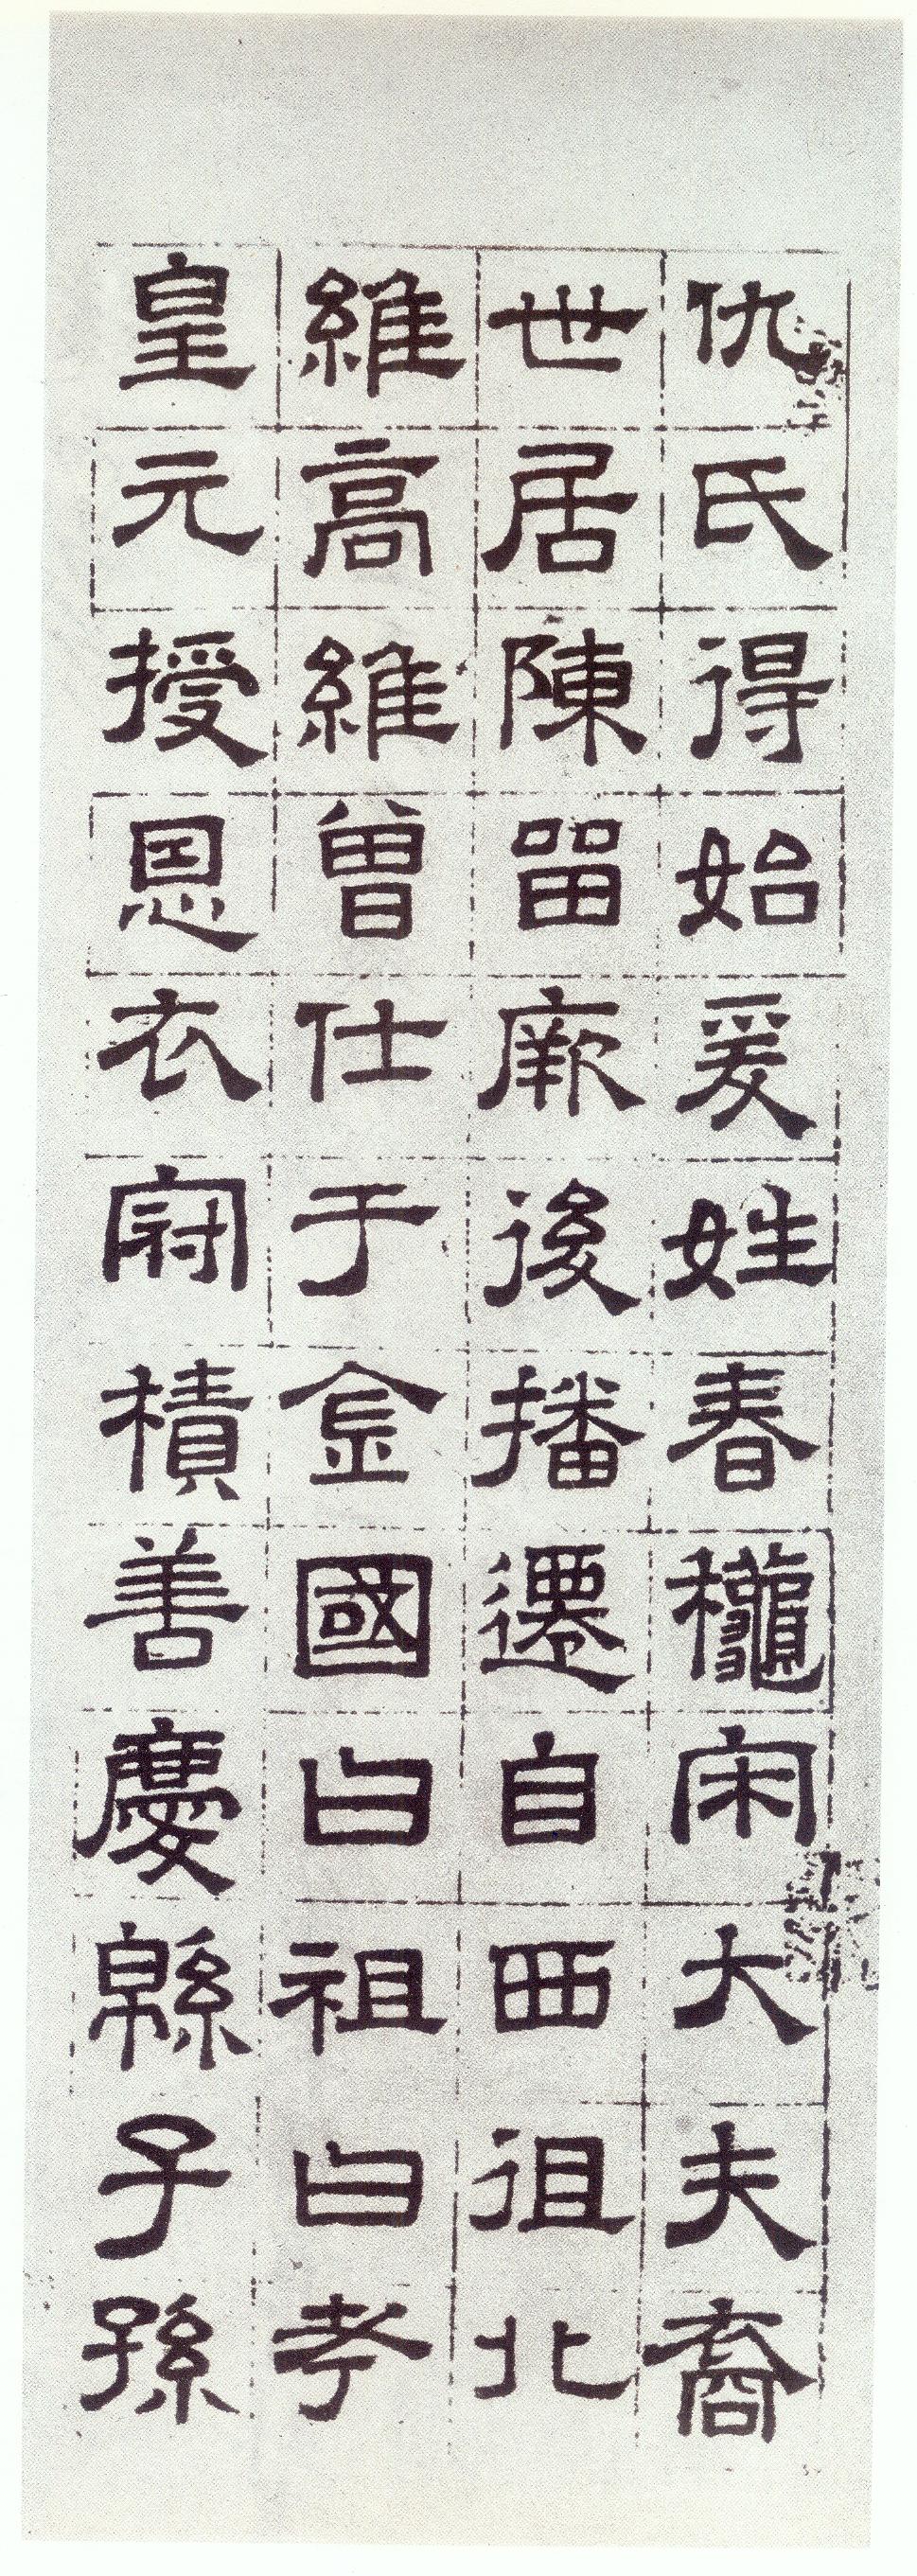 仇氏得始爰姓春穐宋大夫裔
世居陳留厥後播遷自西徂北
維高維曾仕于金國曰祖曰孝
皇元授恩衣冠積善慶緜子孫